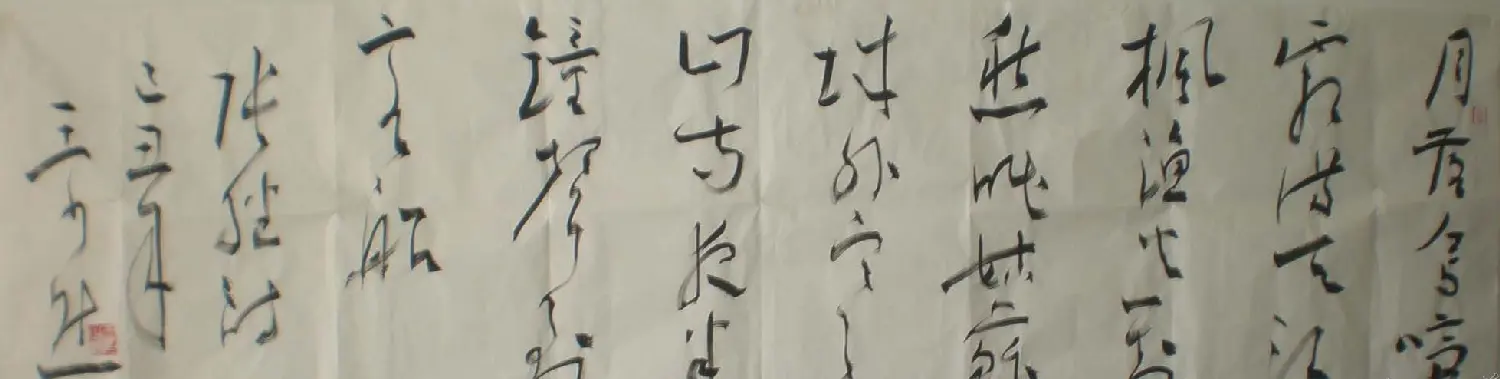 月落乌啼
霜满天江
枫渔火对
愁眠姑蘇
城外寒
山寺夜半
鐘聲到
客船
张继诗
己丑年